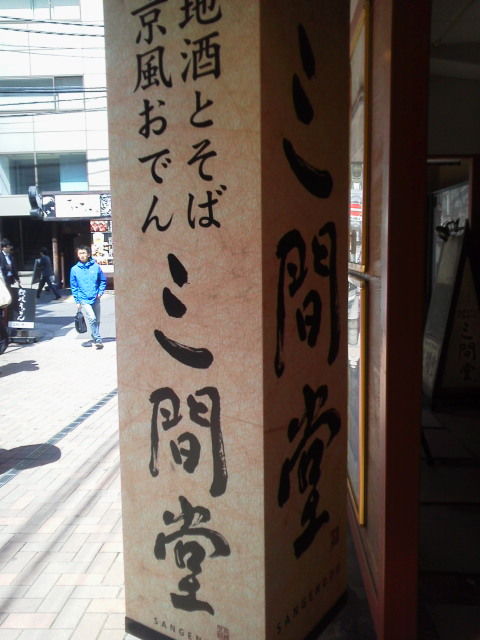 地酒とそば
京風おでん
三間堂
SANGEN
三間堂
SANGENDO
三間堂